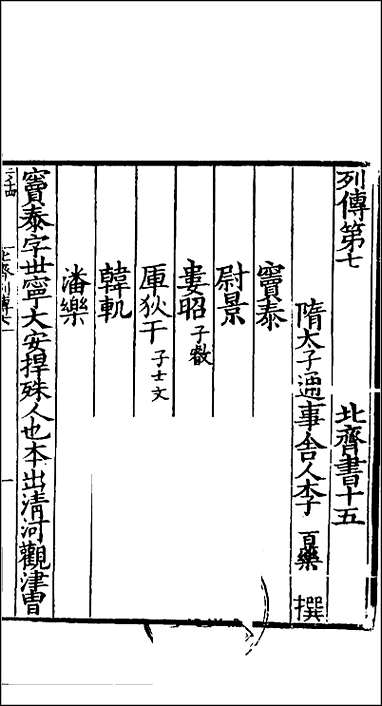 列傳第七 北齊書十五
隋太子通事舍人李 百藥 撰
竇泰
尉景
婁昭 子叡
厙狄干 子士文
韓軌
潘樂
竇泰字世寧大安捍殊人也本出清河觀津胄